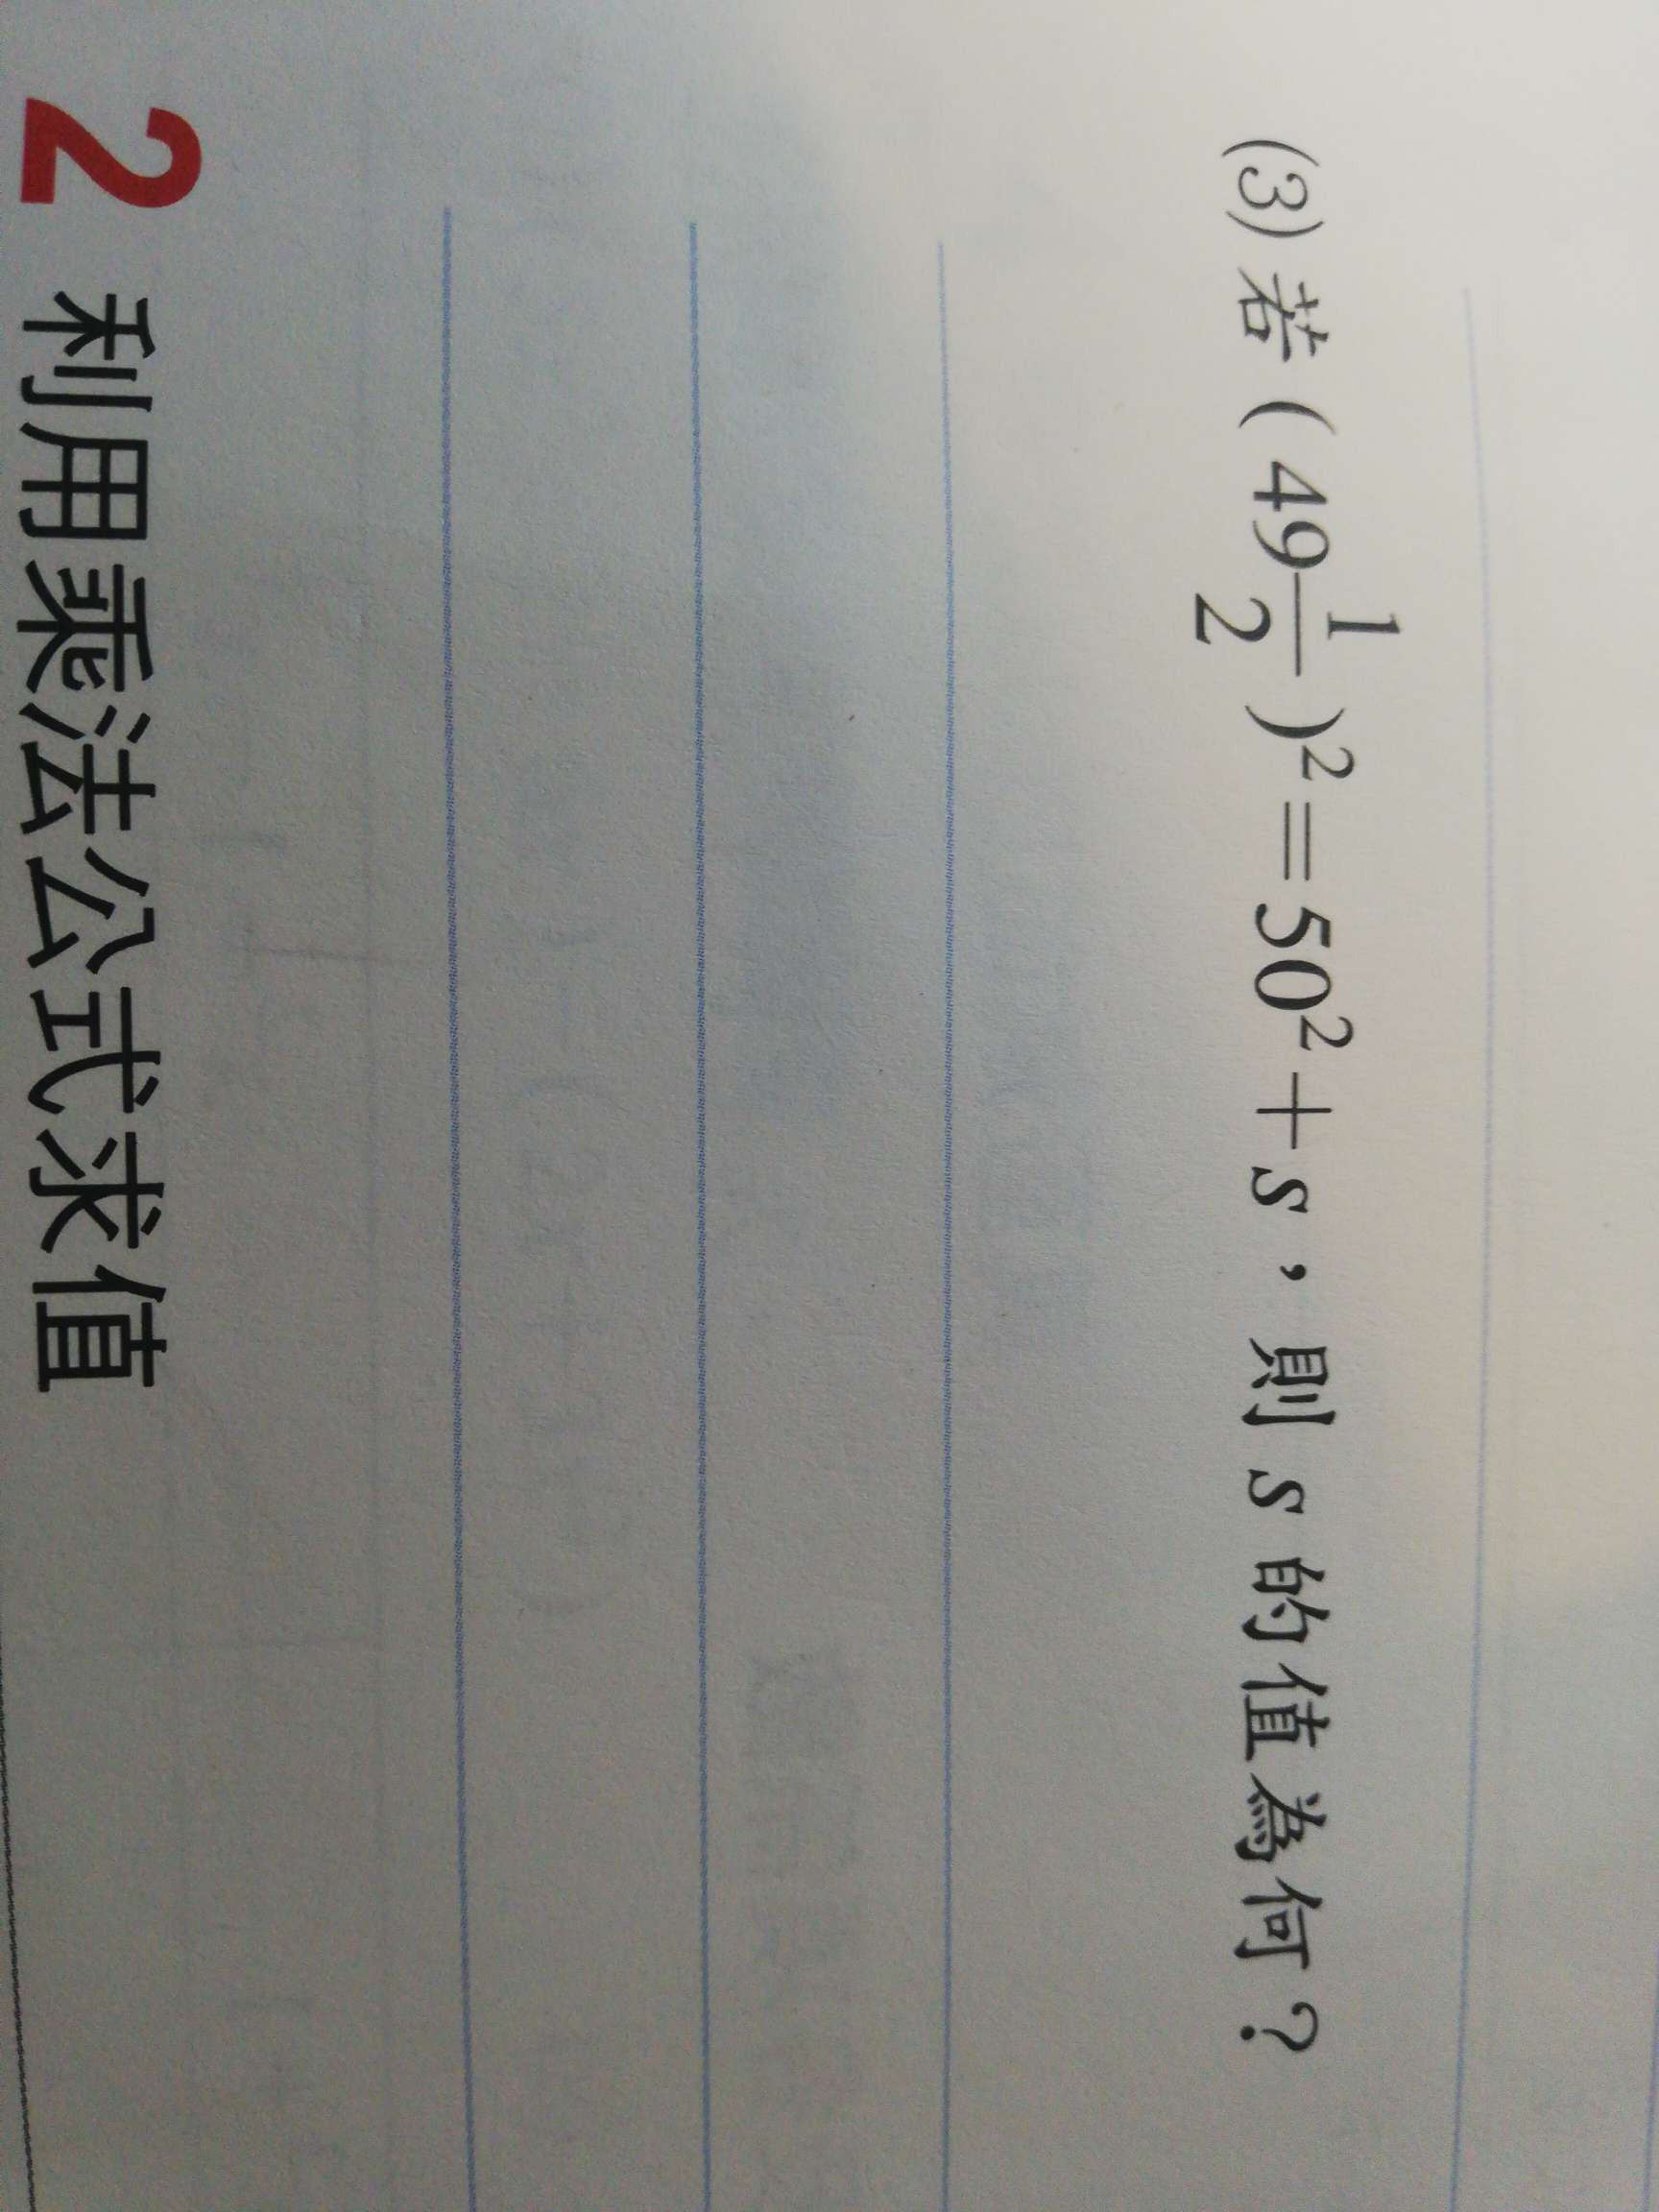 (3) 若 ( 49 1/2 )² = 50² + s，則 s 的值為何？
2 利用乘法公式求值